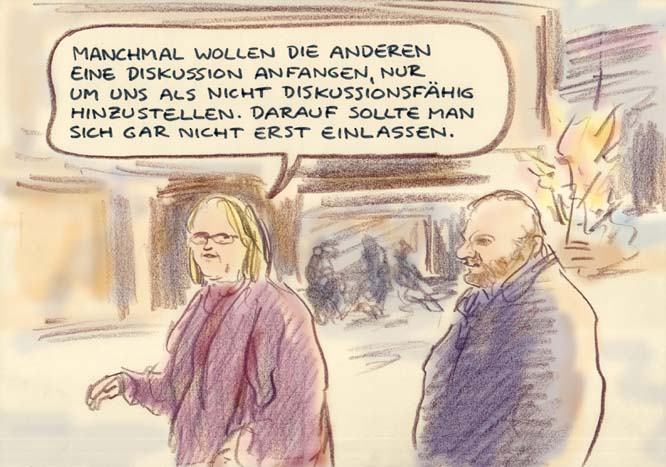 MANCHMAL WOLLEN DIE ANDEREN
EINE DISKUSSION ANFANGEN, NUR
UM UNS ALS NICHT DISKUSSIONSFÄHIG
HINZUSTELLEN. DARAUF SOLLTE MAN
SICH GAR NICHT ERST EINLASSEN.